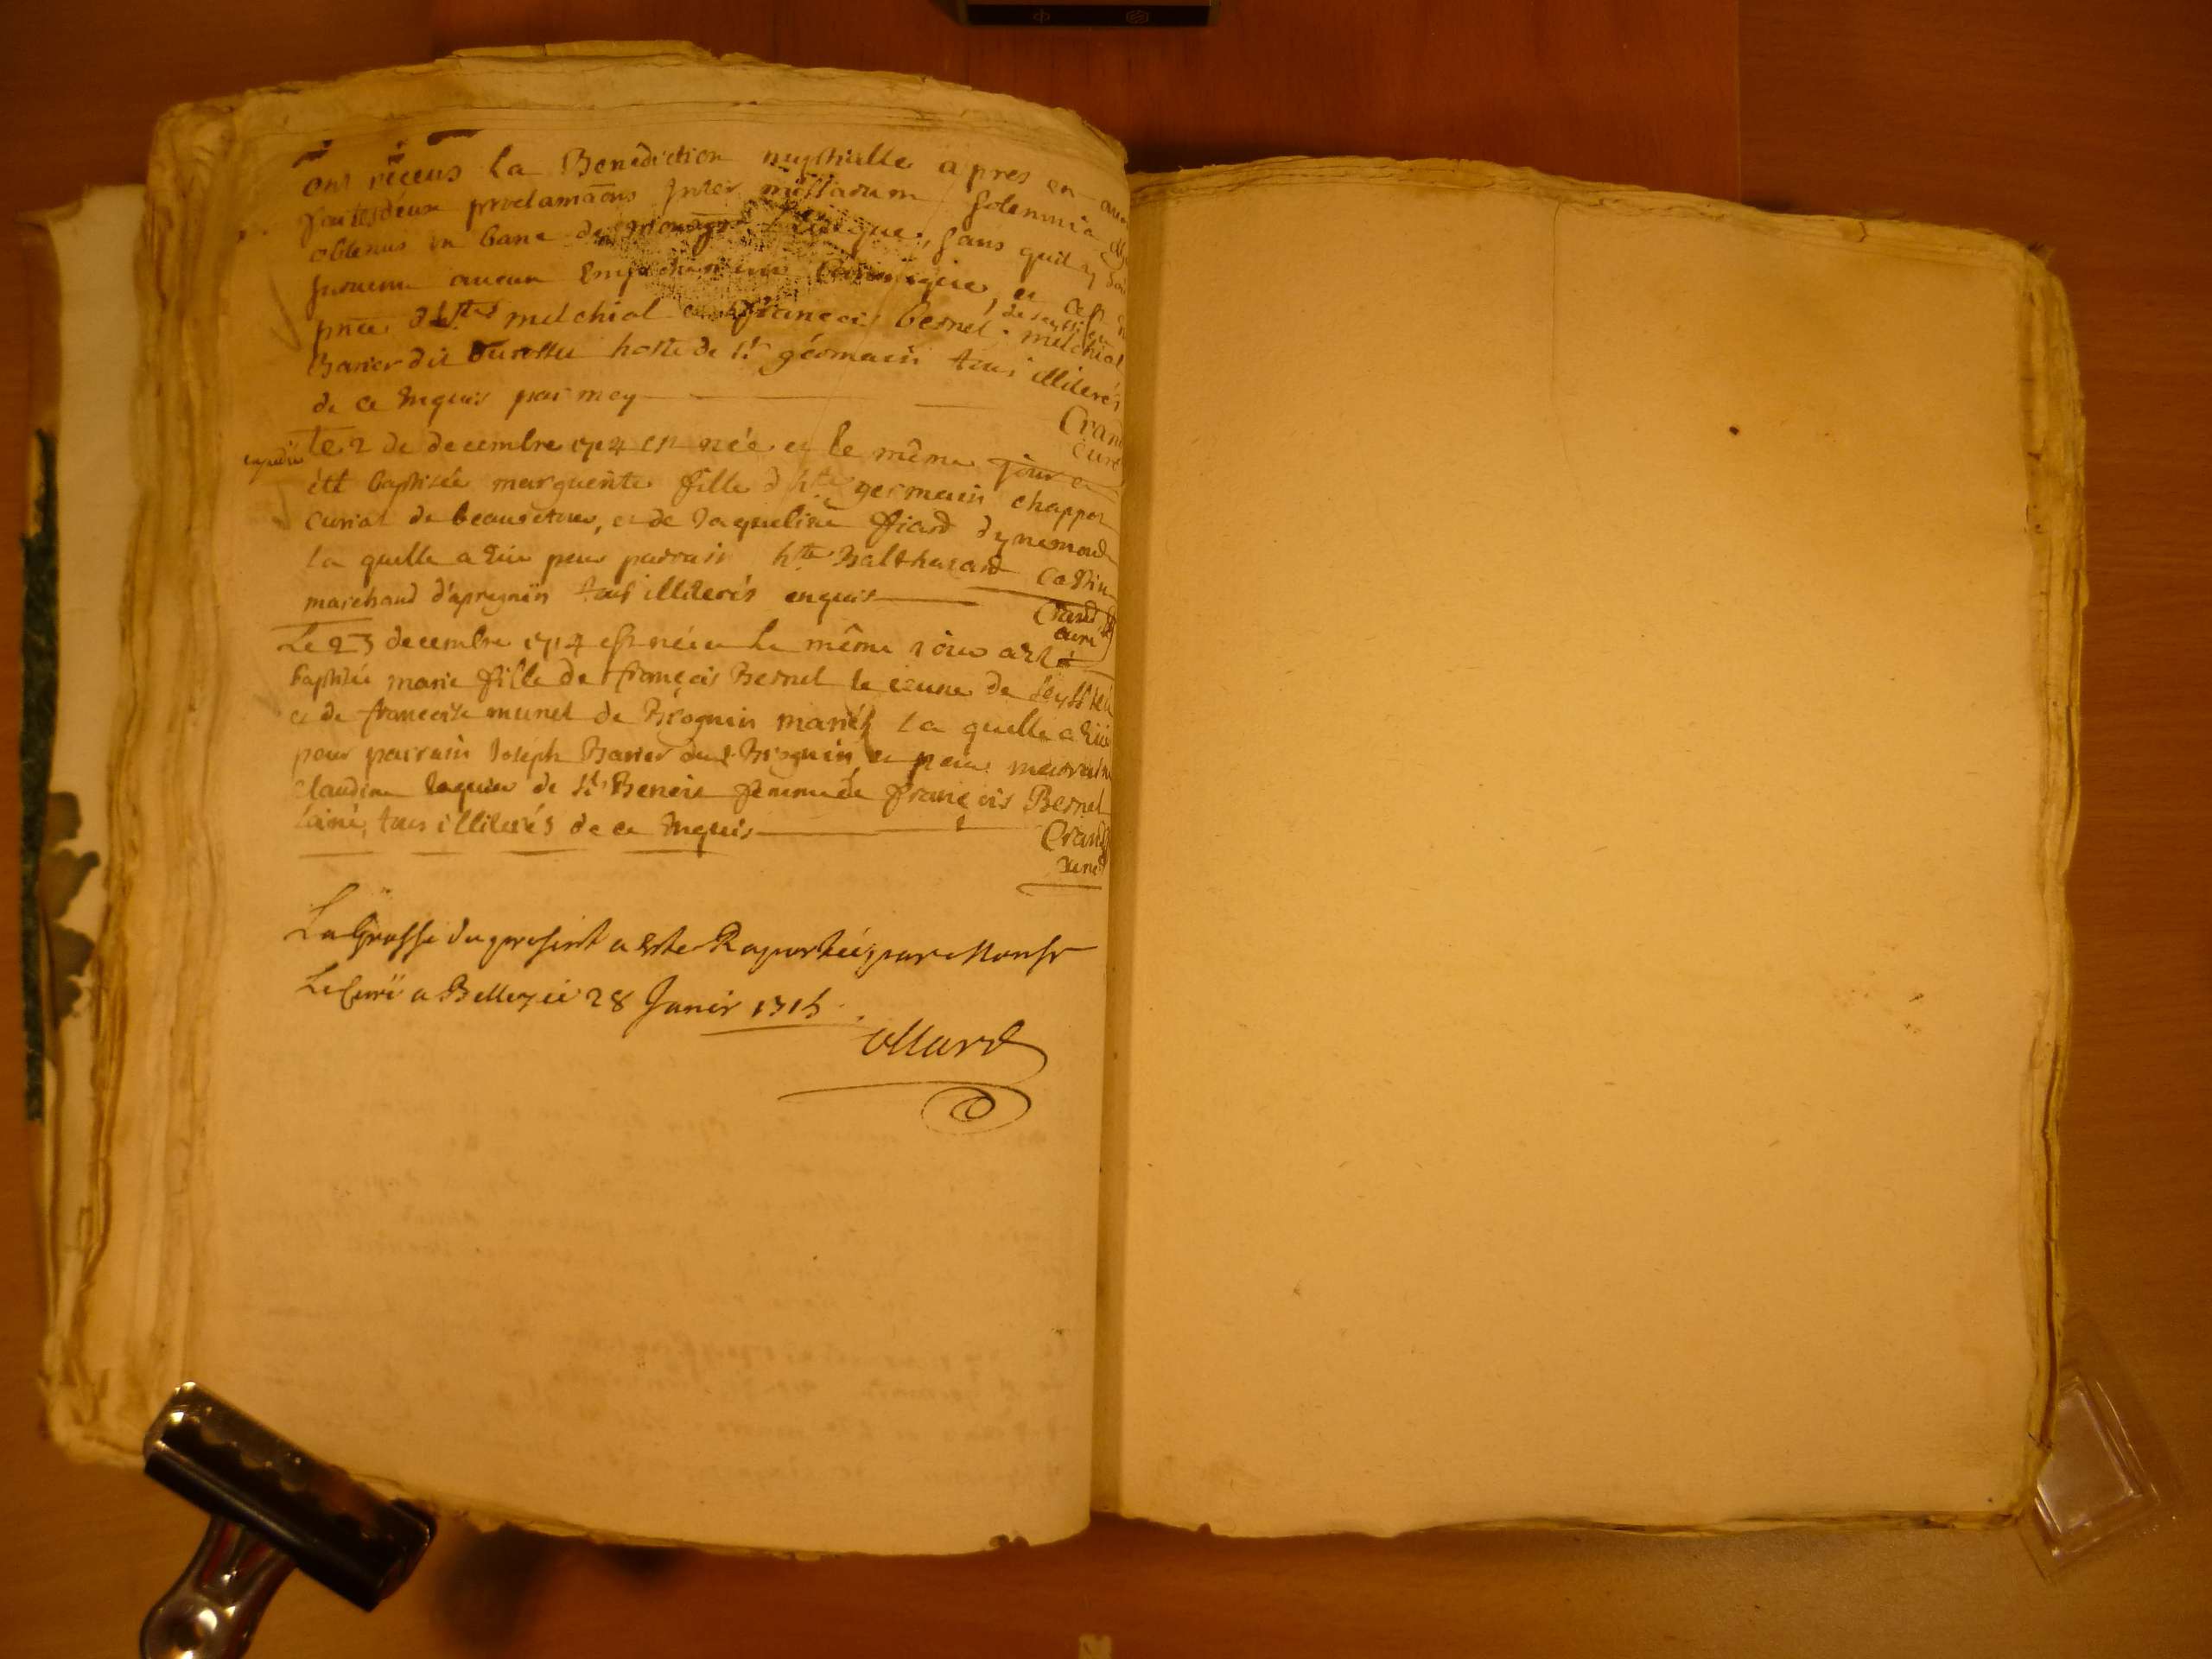 ont reçeus la Benediction nuptialle apres en avoir
faites deux proclamaõns Inter missarum solemnia
obtenus un banc de Monsgr l'evêque, sans quil y
survenu aucun Empechement Canonique, et ce en
pñce d'h.tes melchiol et françois bernel de seyssieu, melchiol
Barier dit hoste de St germain tous illiterés
de ce Enquis par moy
Crand
curé
Le 2 de decembre 1714 est née et le même jour a
été baptisée marguerite fille d'h.te germain chappot
curial de beauretour, et de Jaqueline ficard d'ynimond
la quelle a Eüe pour parrain h.te Balthazard
marchand d'apregnin tous illiterés enquis
Crand
curé
Le 23 decembre 1714 est née et le même jour a Eté
baptisée marie fille de françois Bernel le jeune de Seyssieu
et de françoise munet de Brognin mariés la quelle a Eüe
pour parrain Joseph Barier dud. Brognin et pour marraine
claudine de St Benoit femme de françois Bernel
lainé, tous illiterés de ce Enquis
Crand
curé
La Grosse du present a Este Raportée par Monsr
Le Curé a Belley ce 28 Janvir 1715